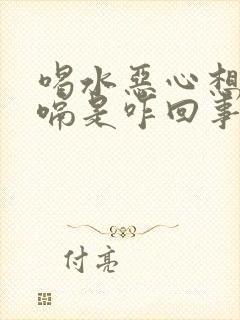 喝水恶心想
嗝是咋回事
付亮